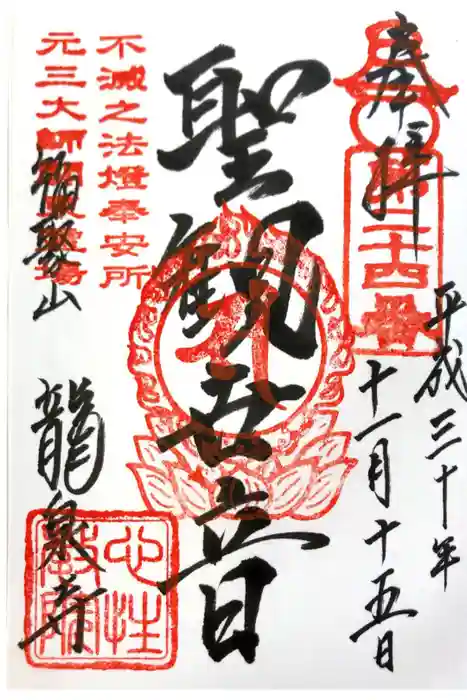 奉拝
二十四番
平成三十年
十一月十五日
聖観世音
不滅之法燈奉安所
元三大師
聚山
龍泉寺
心性